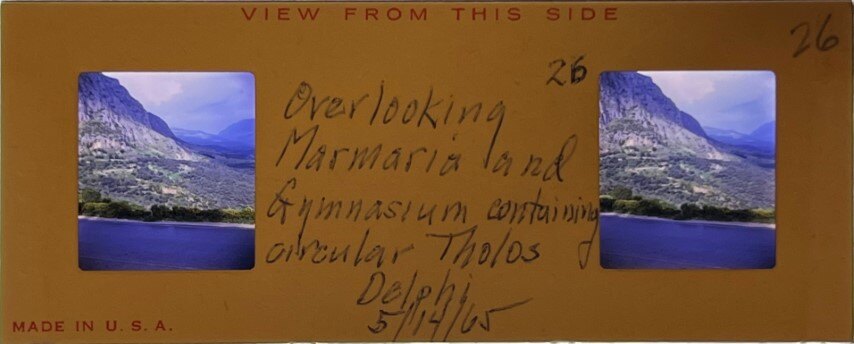 VIEW FROM THIS SIDE
26
26
Overlooking
Marmaria and
Gymnasium containing
circular Tholos
Delphi
5/14/65
MADE IN U.S.A.